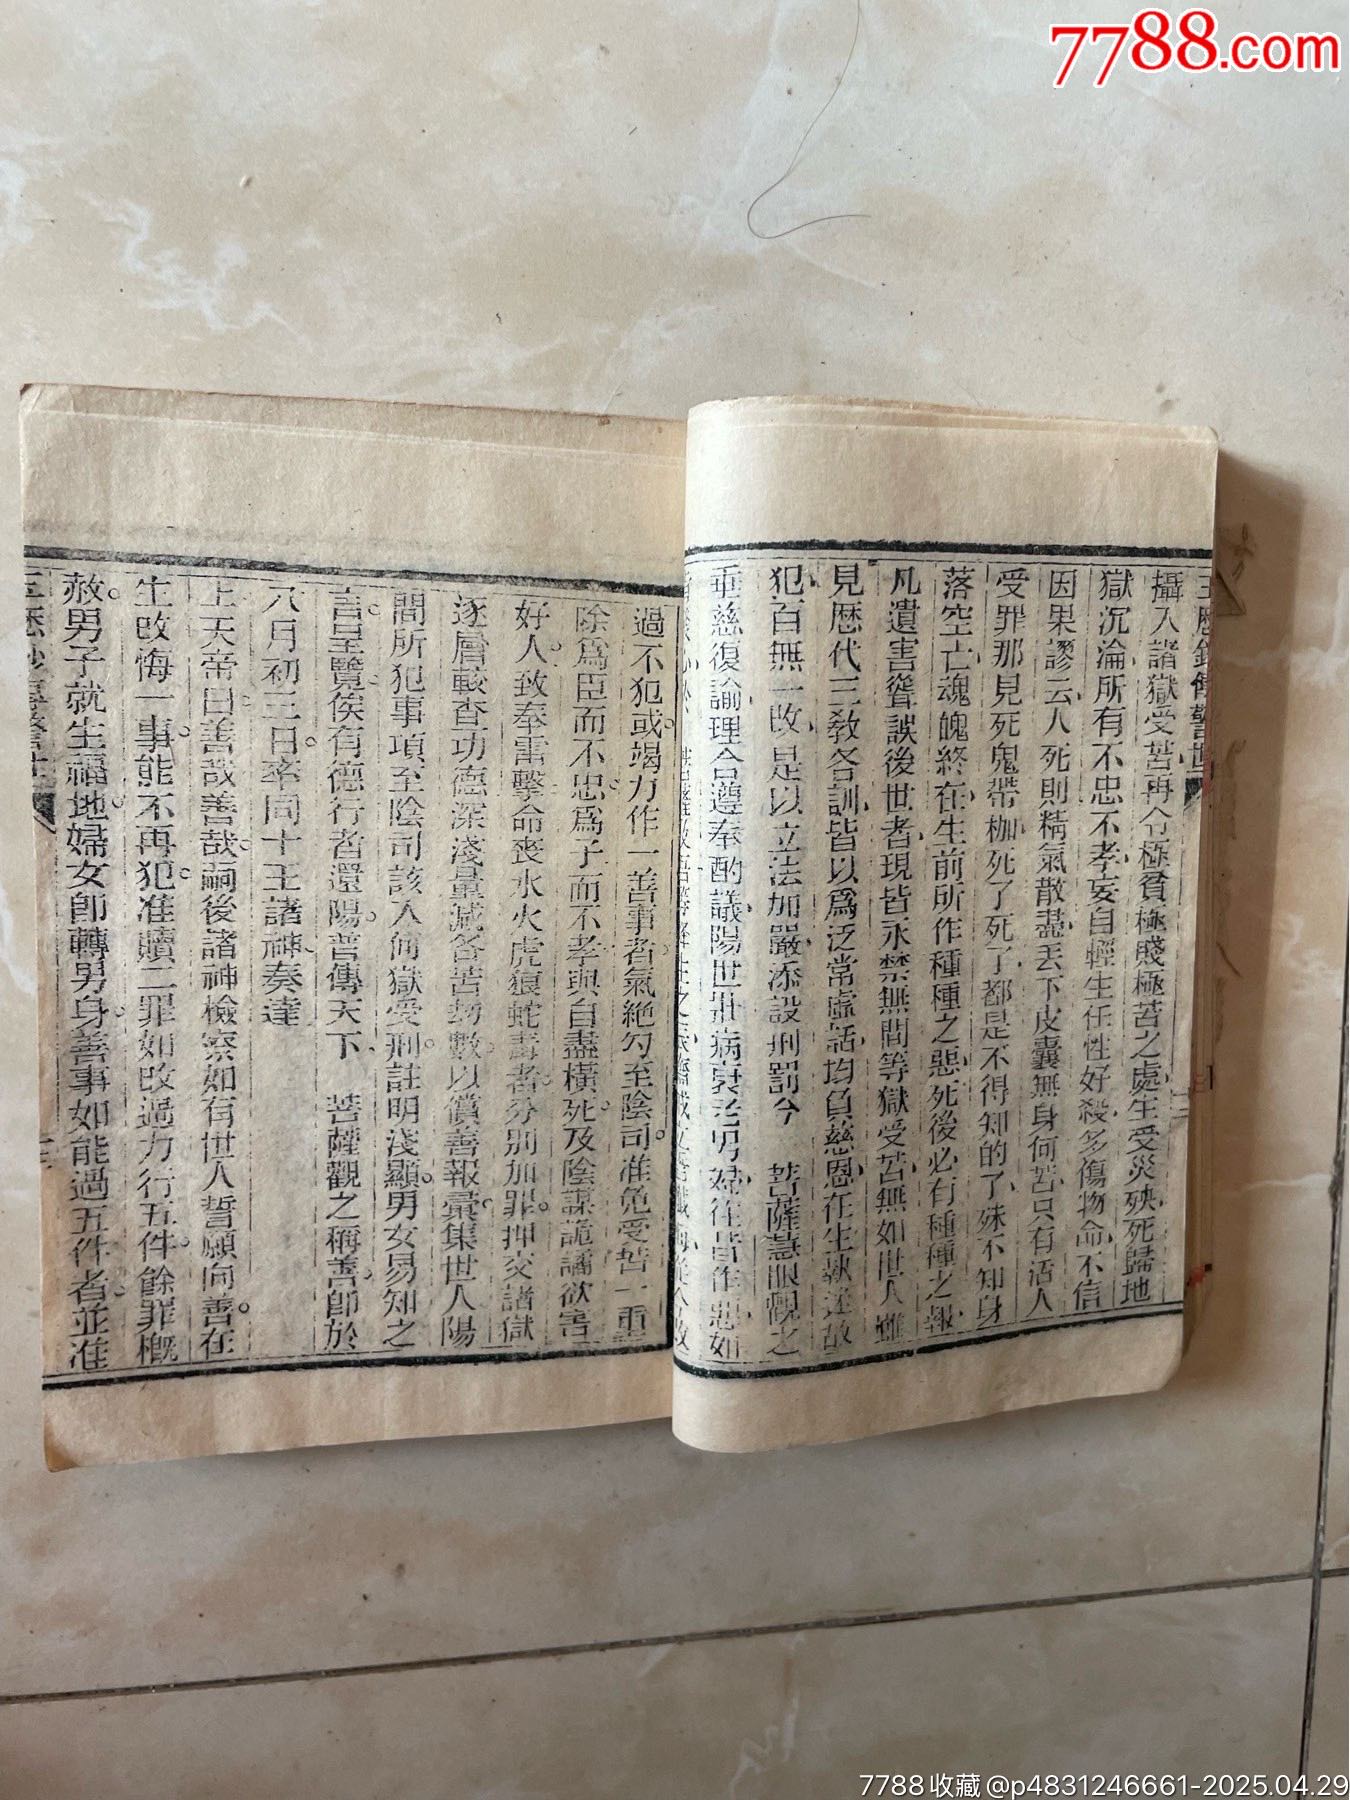 7788.com
攝入諸獄受苦再令極貧極賤極苦之處生受災殃死歸地
獄沉淪所有不忠不孝妄自輕生任性好殺多傷物命不信
因果謬云人死則精氣散盡丟下皮囊無身何苦只有活人
受罪那見死鬼帶枷死了死了都是不得知的了殊不知身
落空亡魂魄終在生前所作種種之惡死後必有種種之報
凡遺害聳誤後世者現皆永禁無間等獄受苦無如世人雖
見歷代三敎各訓皆以爲泛常虛話均負慈恩在生執迷故
犯百無一改是以立法加嚴添設刑罰今 菩薩慧眼覷之
垂慈復諭理合遵奉酌議陽世壯病衰老男婦往昔作惡如
過不犯或竭力作一善事者氣絕勾至陰司准免受苦一重
除爲臣而不忠爲子而不孝與自盡橫死及陰謀詭譎欲害
好人致奉雷擊命喪水火虎狼蛇毒者分別加罪押交諸獄
逐層載查功德深淺量減各苦劫數以償善報彙集世人陽
間所犯事項至陰司該入何獄受刑註明淺顯男女易知之
言呈覽俟有德行者還陽普傳天下 菩薩觀之稱善即於
八月初三日率同十王諸神奏達
上天帝曰善哉善哉嗣後諸神檢察如有世人誓願向善在
生改悔一事能不再犯准贖二罪如改過力行五件餘罪概
赦男子就生福地婦女即轉男身善事如能過五件者並准
7788收藏@p4831246661-2025.04.29